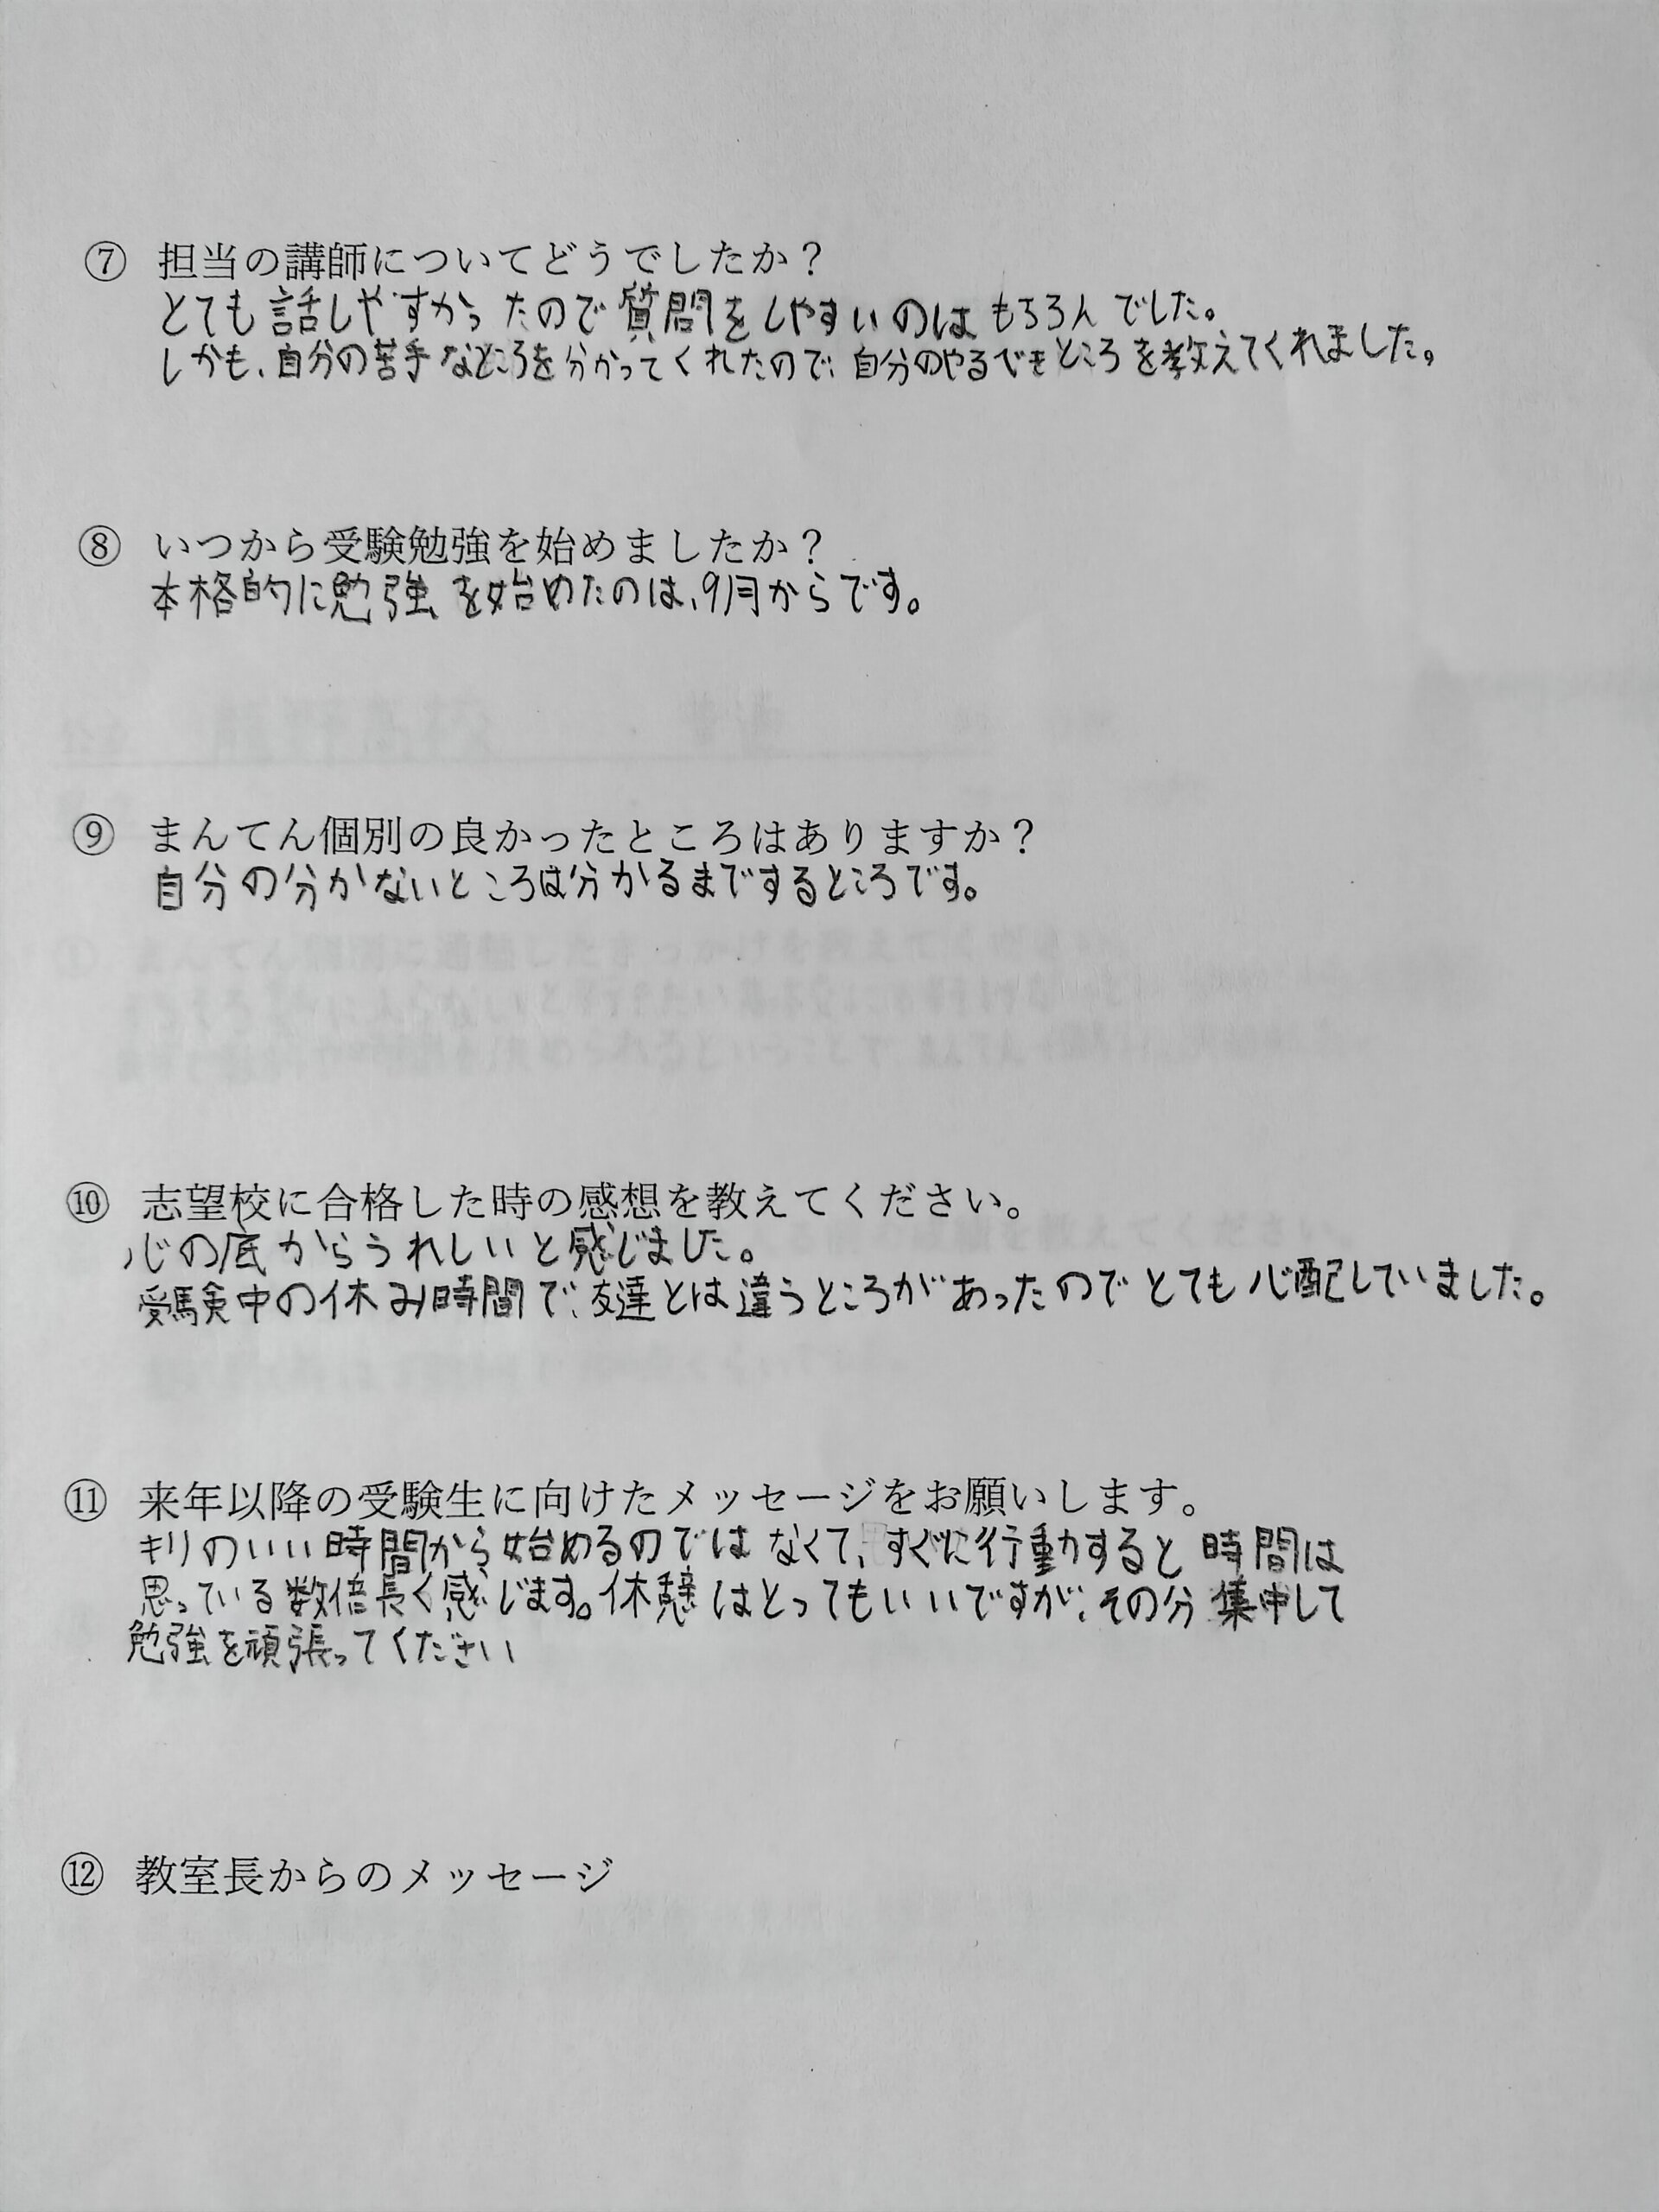 ⑦ 担当の講師についてどうでしたか？
とても話しやすかったので質問をしやすいのはもちろんでした。
しかも、自分の苦手なところを分かってくれたので、自分のやるべきところを教えてくれました。
⑧ いつから受験勉強を始めましたか？
本格的に勉強を始めたのは、9月からです。
⑨ まんてん個別の良かったところはありますか？
自分の分かないところは分かるまでするところです。
⑩ 志望校に合格した時の感想を教えてください。
心の底からうれしいと感じました。
受験中の休み時間で、友達とは違うところがあったのでとても心配していました。
⑪ 来年以降の受験生に向けたメッセージをお願いします。
キリのいい時間から始めるのではなくて、すぐに行動すると時間は
思っている数倍長く感じます。休憩はとってもいいですが、その分集中して
勉強を頑張ってください
⑫ 教室長からのメッセージ